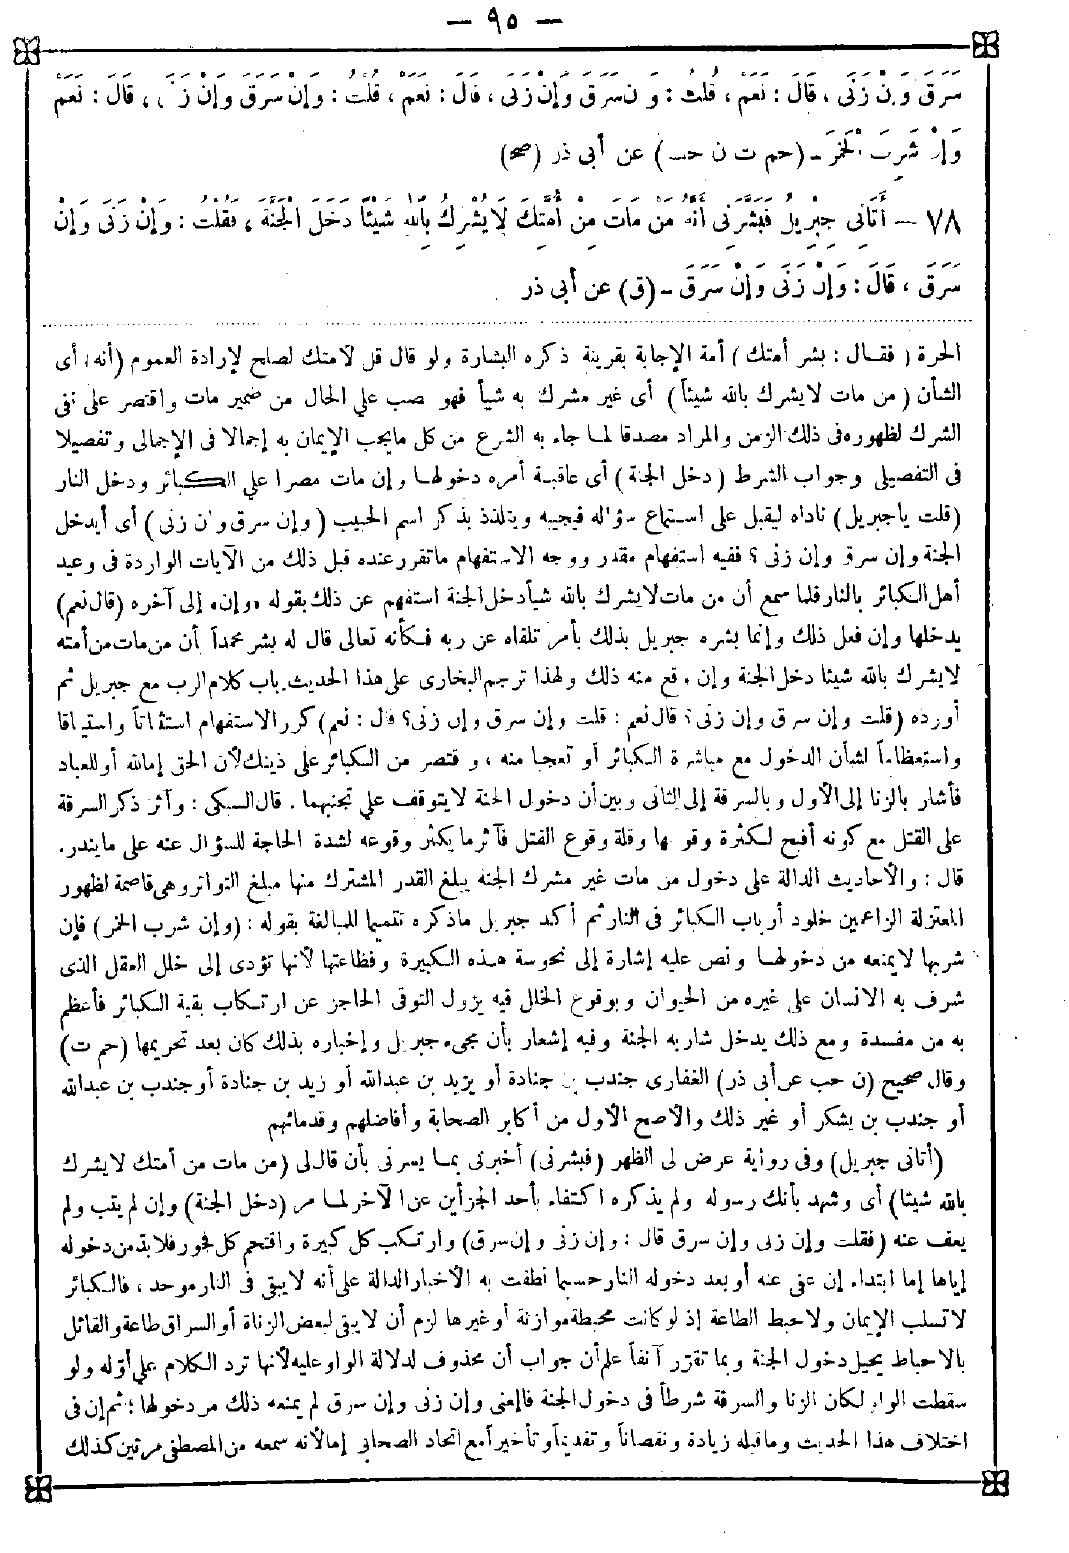 — ٩٥ —
سَرَقَ وَإِنْ زَنَى ، قَالَ : نَعَمْ ، قُلْتُ : وَإِنْ سَرَقَ وَإِنْ زَنَى ، قَالَ : نَعَمْ ، قُلْتُ : وَإِنْ سَرَقَ وَإِنْ زَنَى ، قَالَ : نَعَمْ
وَإِنْ شَرِبَ الْخَمْرَ - (حم ت ن حب) عن أبى ذر (صح)
٧٨ — أَتَانِى جِبْرِيلُ فَبَشَّرَنِى أَنَّهُ مَنْ مَاتَ مِنْ أُمَّتِكَ لَا يُشْرِكُ بِاللّٰهِ شَيْئًا دَخَلَ الْجَنَّةَ ، فَقُلْتُ : وَإِنْ زَنَى وَإِنْ
سَرَقَ ، قَالَ : وَإِنْ زَنَى وَإِنْ سَرَقَ - (ق) عن أبى ذر
الحرة (فقال : بشر أمتك) أمة الإجابة بقرينة ذكره البشارة ولو قال قل لأمتك لصلح لإرادة العموم (أنه) أى
الشأن (من مات لايشرك بالله شيئا) أى غير مشرك به شيأ فهو نصب على الحال من ضمير مات واقتصر على نفى
الشرك لظهوره فى ذلك الزمن والمراد مصدقا لما جاء به الشرع من كل مايجب الإيمان به إجمالا فى الإجمالى وتفصيلا
فى التفصيلى وجواب الشرط (دخل الجنة) أى عاقبة أمره دخولها وإن مات مصرا على الكبائر ودخل النار
(قلت ياجبريل) ناداه ليقبل على استماع سؤاله فيجيبه ويتلذذ بذكر اسم الحبيب (وإن سرق وإن زنى) أى أيدخل
الجنة وإن سرق وإن زنى ؟ ففيه استفهام مقدر ووجه الاستفهام ماتقرر عنده قبل ذلك من الآيات الواردة فى وعيد
أهل الكبائر بالنار فلما سمع أن من مات لايشرك بالله شيأ دخل الجنة استفهم عن ذلك بقوله «وإن» إلى آخره (قال نعم)
يدخلها وإن فعل ذلك وإنما بشره جبريل بذلك بأمر تلقاه عن ربه فكأنه تعالى قال له بشر محمداً أن من مات من أمته
لايشرك بالله شيئا دخل الجنة وإن وقع منه ذلك ولهذا ترجم البخارى على هذا الحديث باب كلام الرب مع جبريل ثم
أورده (قلت وإن سرق وإن زنى ؟ قال نعم : قلت وإن سرق وإن زنى؟ قال : نعم) كرر الاستفهام استثباتاً واستيثاقا
واستعظاماً لشأن الدخول مع مباشرة الكبائر أو تعجبا منه ، واقتصر من الكبائر على ذينك لأن الحق إما لله أو للعباد
فأشار بالزنا إلى الأول وبالسرقة إلى الثانى وبين أن دخول الجنة لايتوقف على تجنبهما . قال السبكى : وآثر ذكر السرقة
على القتل مع كونه أقبح لكثرة وقوعها وقلة وقوع القتل فآثر مايكثر وقوعه لشدة الحاجة للسؤال عنه على مايندر.
قال : والأحاديث الدالة على دخول من مات غير مشرك الجنة يبلغ القدر المشترك منها مبلغ التواتر وهى قاصمة لظهور
المعتزلة الزاعمين خلود أرباب الكبائر فى النار ثم أكد جبريل ماذكره تتميما للمبالغة بقوله : (وإن شرب الخمر) فإن
شربها لايمنعه من دخولها ونص عليه إشارة إلى نحوسة هذه الكبيرة وفظاعتها لأنها تؤدى إلى خلل العقل الذى
شرف به الانسان على غيره من الحيوان وبوقوع الخلل فيه يزول التوقى الحاجز عن ارتكاب بقية الكبائر فأعظم
به من مفسدة ومع ذلك يدخل شاربه الجنة وفيه إشعار بأن مجىء جبريل وإخباره بذلك كان بعد تحريمها (حم ت)
وقال صحيح (ن حب عن أبى ذر) الغفارى جندب بن جنادة أو يزيد بن عبدالله أو زيد بن جنادة أو جندب بن عبدالله
أو جندب بن يشكر أو غير ذلك والأصح الأول من أكابر الصحابة وأفاضلهم وقدمائهم
(أتانى جبريل) وفى رواية عرض لى الظهر (فبشرنى) أخبرنى بما يسرنى بأن قال لى (من مات من أمتك لايشرك
بالله شيئا) أى وشهد بأنك رسوله ولم يذكره اكتفاء بأحد الجزأين عن الآخر لما مر (دخل الجنة) وإن لم يتب ولم
يعف عنه (فقلت وإن زنى وإن سرق قال : وإن زنى وإن سرق) وارتكب كل كبيرة واقتحم كل فجور فلابد من دخوله
إياها إما ابتداء إن عفى عنه أو بعد دخوله النار حسبما نطقت به الأخبار الدالة على أنه لايبقى فى النار موحد ، فالكبائر
لاتسلب الإيمان ولاتحبط الطاعة إذ لو كانت محبطة موازنة أو غيرها لزم أن لايبقى لبعض الزناة أو السراق طاعة والقائل
بالاحباط يحيل دخول الجنة وبما تقرر آنفاً علم أن جواب أن محذوف لدلالة الواو عليه لأنها ترد الكلام على أوله ولو
سقطت الواو لكان الزنا والسرقة شرطاً فى دخول الجنة فالمعنى وإن زنى وإن سرق لم يمنعه ذلك من دخولها ؛ ثم إن فى
اختلاف هذا الحديث وماقبله زيادة ونقصاناً وتقديماً وتأخيراً مع اتحاد الصحابى إما لأنه سمعه من المصطفى مرتين كذلك